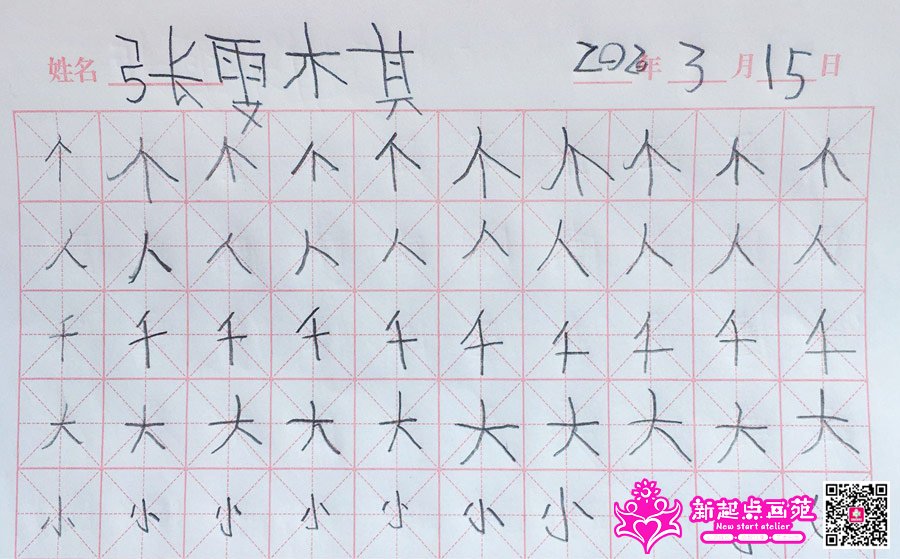 姓名 张雯木其 202 年 3 月 15 日
个 个 个 个 个 个 个 个 个 个
人 人 人 人 人 人 人 人 人 人
千 千 千 千 千 千 千 千 千 千
大 大 大 大 大 大 大 大 大 大
小 小 小 小 小 小 小
新起点画苑
New start atelier